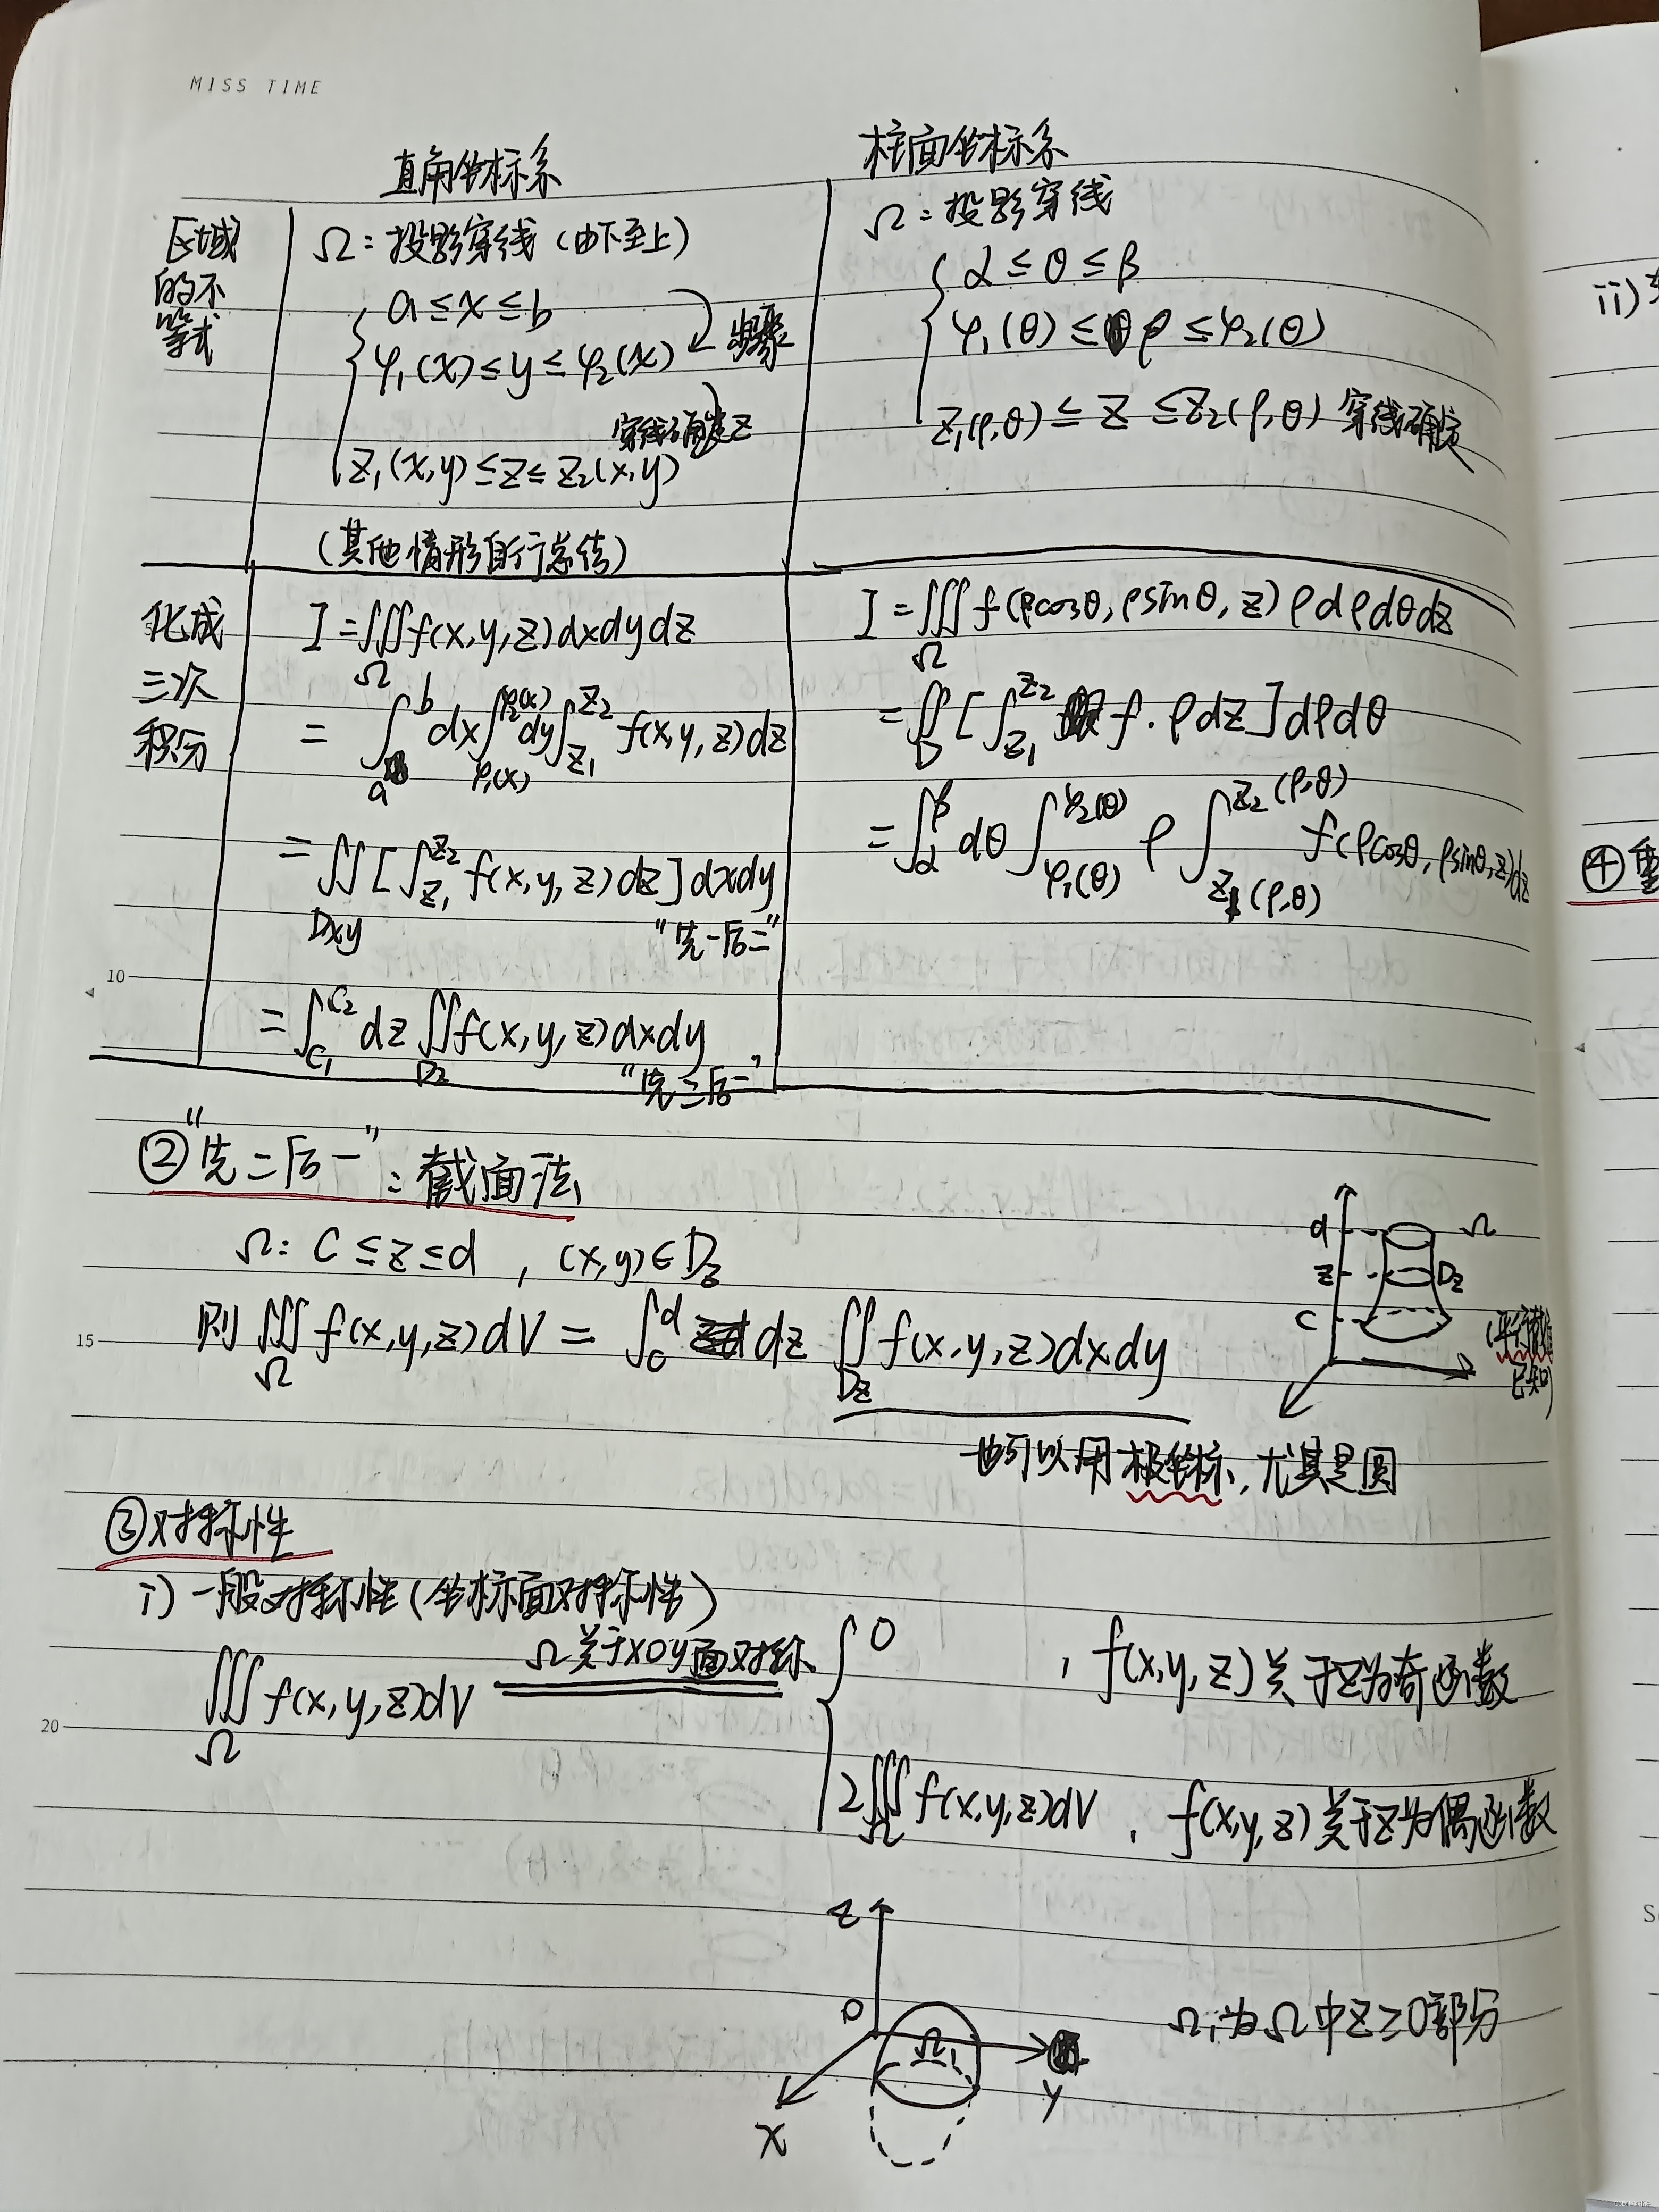 MISS TIME
直角坐标系
柱面坐标系
区域的不等式
Ω：投影穿线（由下至上）
a ≤ x ≤ b
φ₁(x) ≤ y ≤ φ₂(x) 步骤
穿线确定z
z₁(x,y) ≤ z ≤ z₂(x,y)
（其他情形自行总结）
Ω：投影穿线
α ≤ θ ≤ β
φ₁(θ) ≤ ρ ≤ φ₂(θ)
z₁(ρ,θ) ≤ z ≤ z₂(ρ,θ) 穿线确定
化成三次积分
I = ∭_Ω f(x,y,z)dxdydz
= ∫_a^b dx ∫_{φ₁(x)}^{φ₂(x)} dy ∫_{z₁}^{z₂} f(x,y,z)dz
= ∬_{Dxy} [∫_{z₁}^{z₂} f(x,y,z)dz]dxdy
“先一后二”
= ∫_{C₁}^{C₂} dz ∬_{Dz} f(x,y,z)dxdy
“先二后一”
I = ∭_Ω f(ρcosθ, ρsinθ, z)ρdρdθdz
= ∬_D [∫_{z₁}^{z₂} f·ρdz]dρdθ
= ∫_α^β dθ ∫_{φ₁(θ)}^{φ₂(θ)} ρ ∫_{z₁(ρ,θ)}^{z₂(ρ,θ)} f(ρcosθ, ρsinθ, z)dz
10
②“先二后一”：截面法
Ω：C ≤ z ≤ d , (x,y)∈Dz
则 ∭_Ω f(x,y,z)dV = ∫_c^d dz ∬_{Dz} f(x,y,z)dxdy
15
也可以用极坐标，尤其是圆
d Ω
z Dz
C
已知)
③对称性
i）一般对称性（坐标面对称性）
∭_Ω f(x,y,z)dV
Ω关于xOy面对称
0 , f(x,y,z)关于z为奇函数
20
2∭_Ω f(x,y,z)dV , f(x,y,z)关于z为偶函数
z
O
Ω₁
y
x
Ω₁为Ω中z≥0部分
ii)
④重